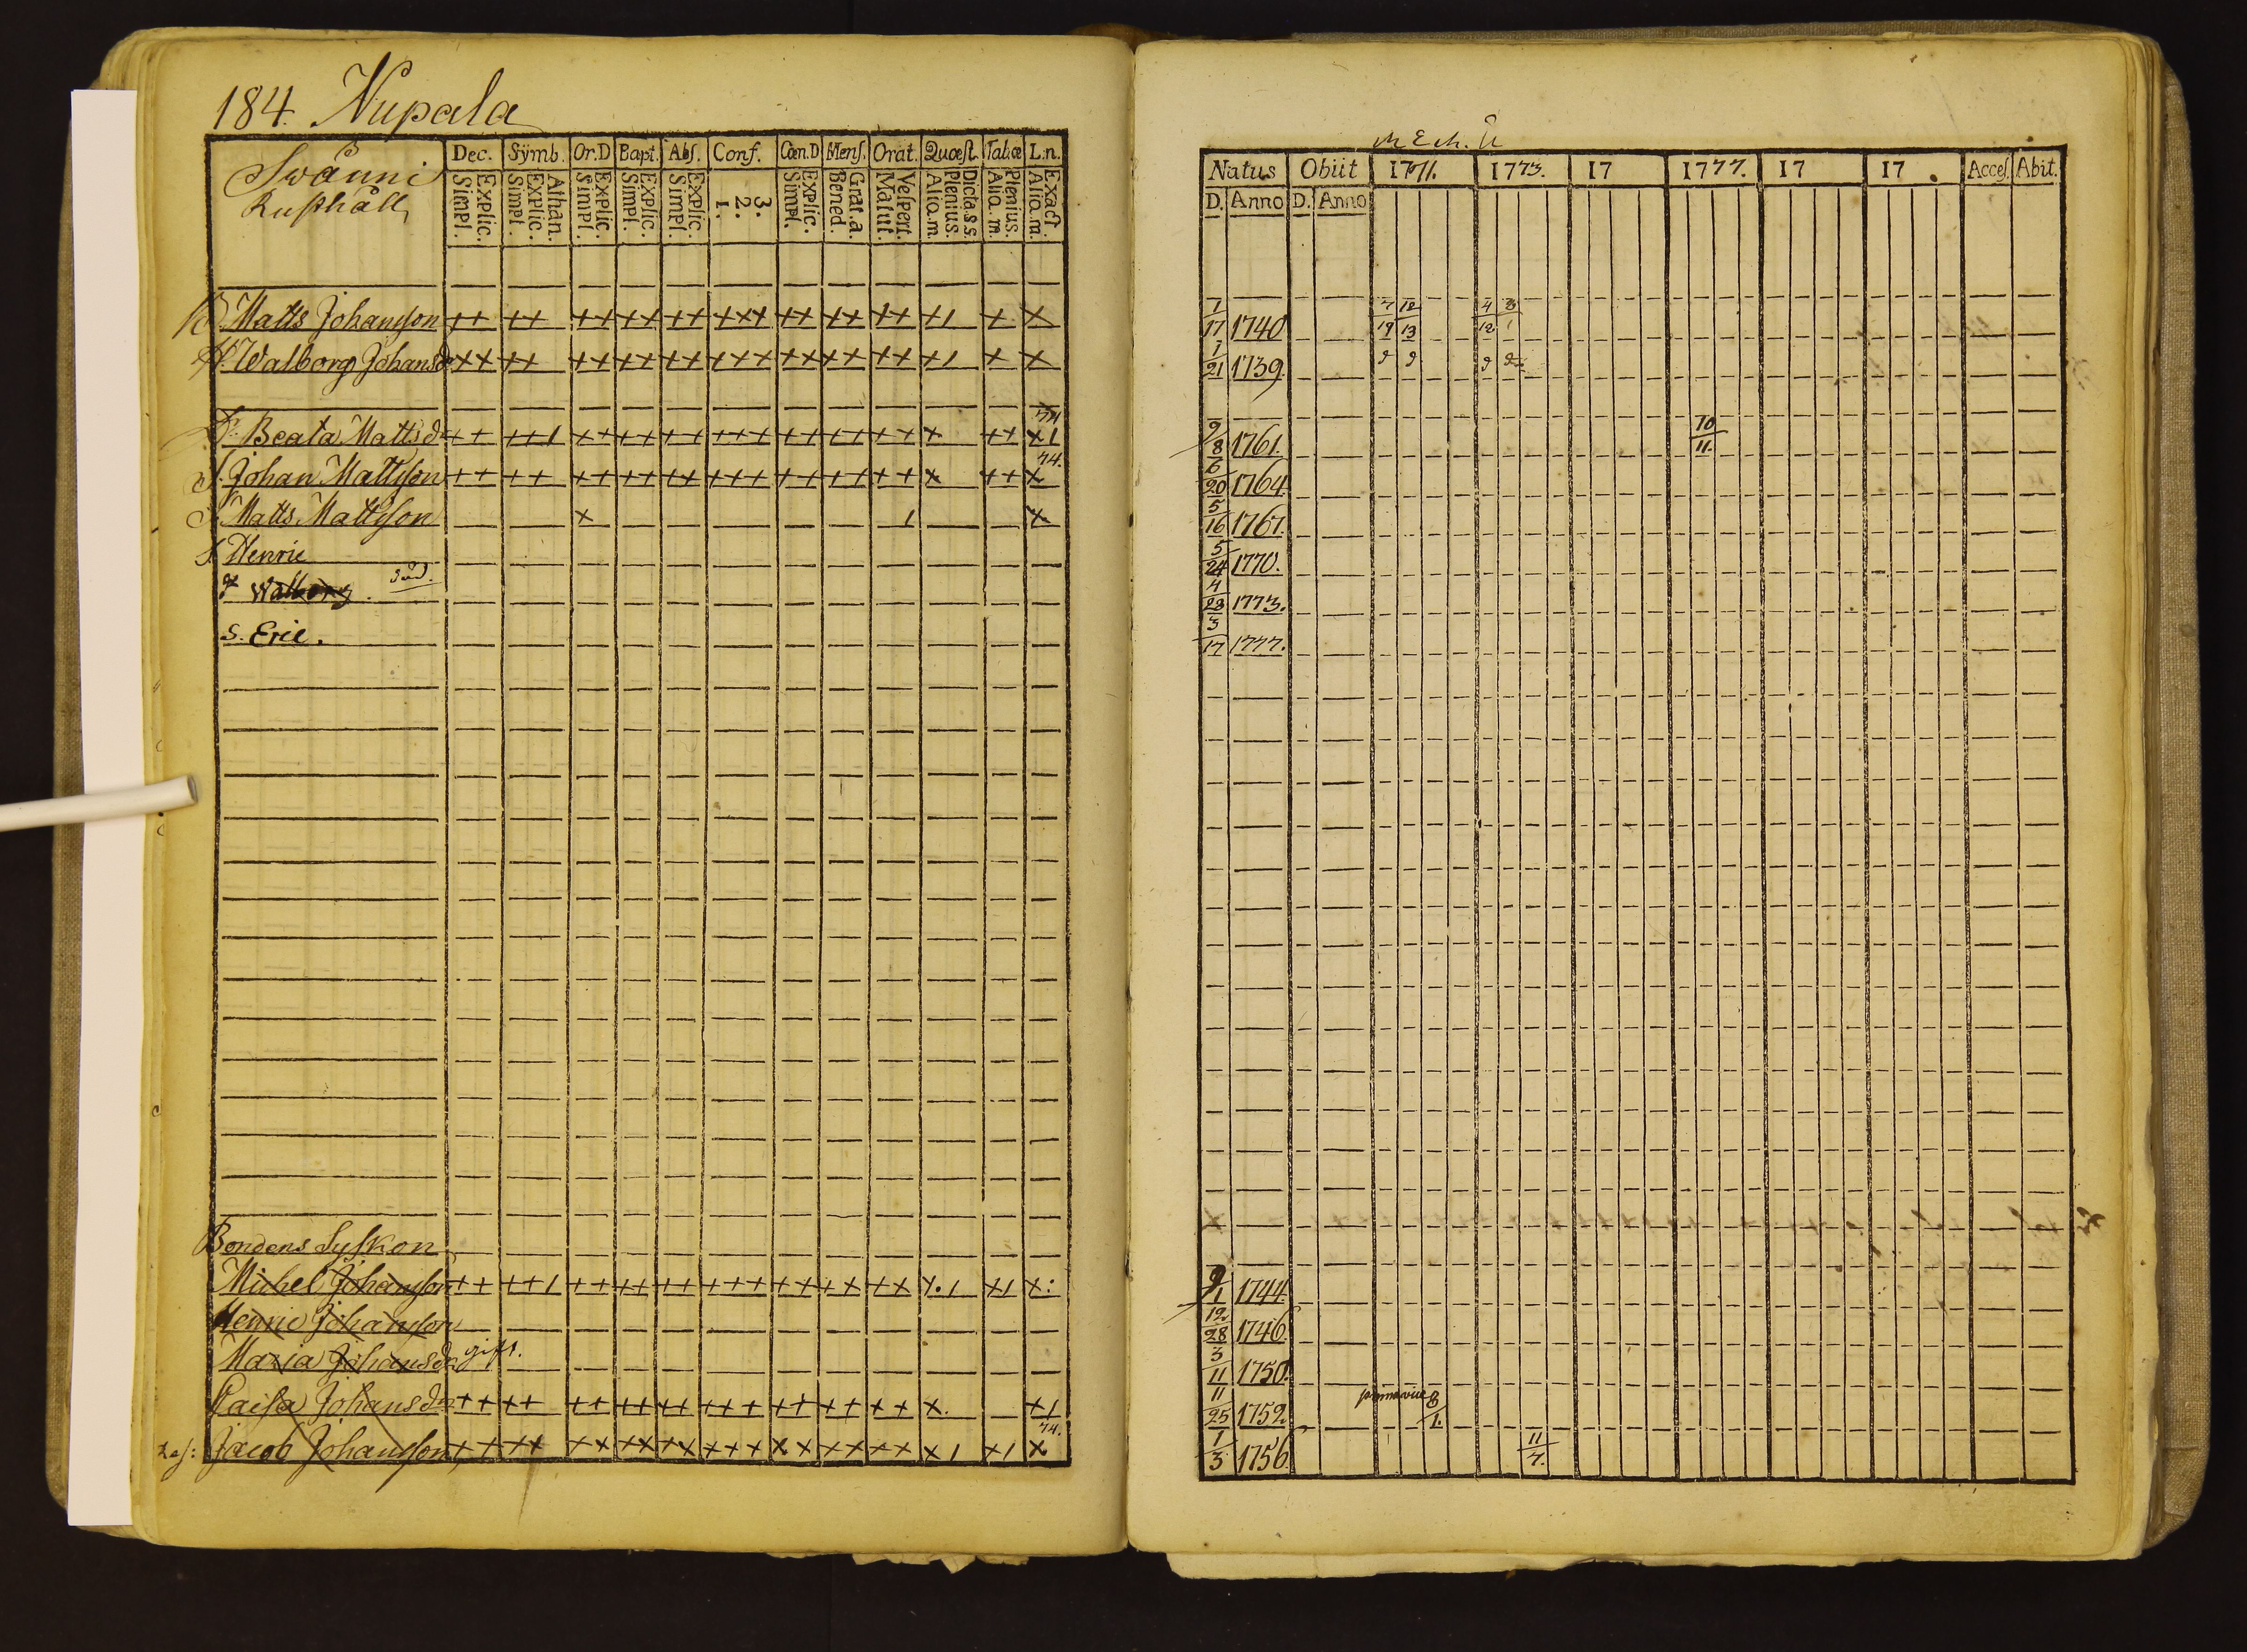 184. Nupala
Swänni
Rusthåll
Dec. Sÿmb. Or.D Bapt. Abs. Conf. Cœn.D Mens. Orat. Quœst. Tabœ L.n.
Explic. Simpl. Athan. Explic. Simpl. Explic. Simpl. Explic. Simpl. Explic. Simpl. 3. 2. 1. Explic. Simpl. Grat.a. Bened. Vespert. Matut. Dicta.s.s. Plenius. Aliq.m. Plenius. Aliq.m. Exact. Aliq.m.
B. Matts Johansson ++ ++ ++ ++ ++ +++ ++ ++ ++ +1 + +
H. Walborg Johansdr ++ ++ ++ ++ ++ +++ ++ ++ ++ +1 + +
D. Beata Mattsdr ++ +++1 ++ ++ ++ +++ ++ ++ ++ + ++ +1
S. Johan Mattsson ++ ++ ++ ++ ++ +++ ++ ++ ++ + ++ + 74.
S. Matts Mattsson + 1 +
S Henric
Walborg. död.
S. Eric.
Bondens Syskon
Michel Johansson ++ ++1 ++ ++ ++ +++ ++ ++ ++ +.1 +1 +:
Henric Johansson
Maria Johansdr gift.
Caisa Johansdr ++ ++ ++ ++ ++ +++ ++ ++ ++ +. +1
Jacob Johansson ++ ++ ++ ++ ++ +++ ++ ++ ++ +1 +1 + 74.
Natus Obiit 1771. 1773. 17 1777. 17 17 Acces. Abit.
D. Anno D. Anno
1/17 1740 7/19 12/13 4/12 3/1
1/21 1739
9/8 1761. 10/11.
6/20 1764
5/16 1767.
5/24 1770.
4/28 1773.
3/17 1777.
9/1 1744
12/28 1746.
3/11 1750.
11/25 1752 8/1.
1/3 1756. 11/4.